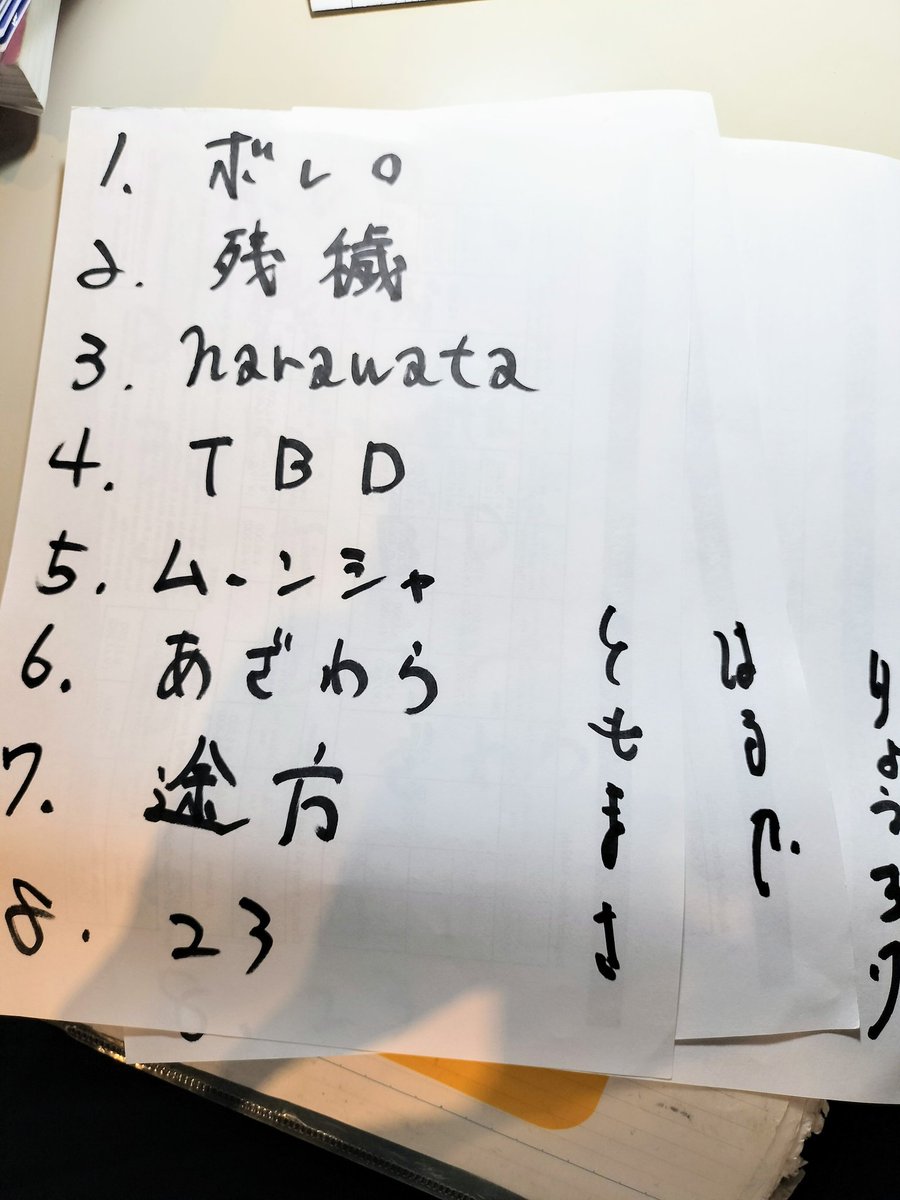 1. ボレロ
2. 残穢
3. harawata
4. TBD
5. ムーンシャ
6. あざわら
7. 途方
8. 23
ともまさ
はるか
りょう